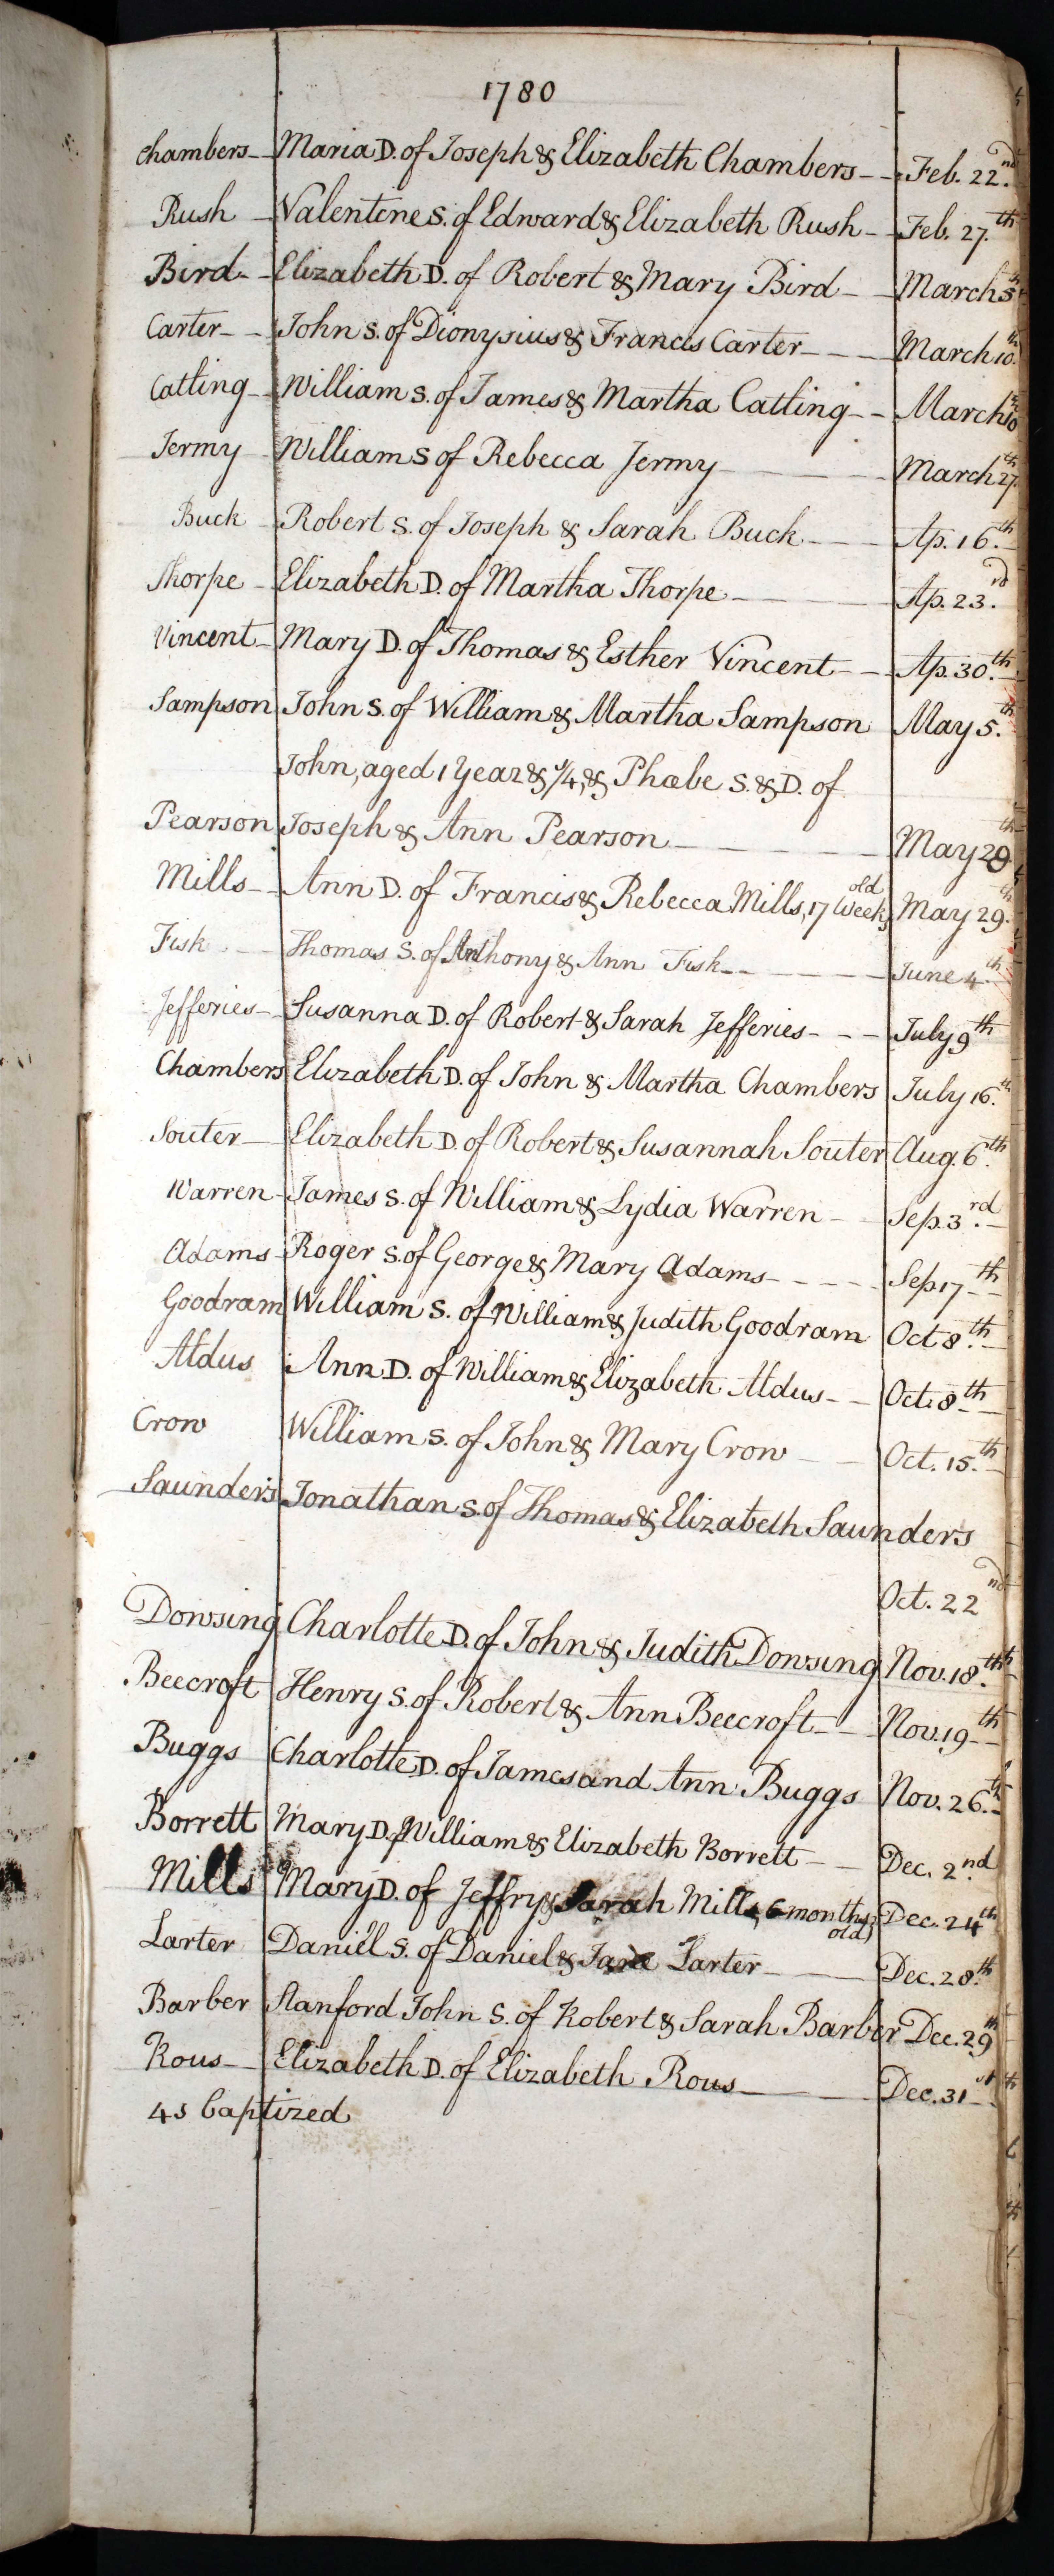 1780
Chambers Maria D. of Joseph & Elizabeth Chambers Feb. 22.nd
Rush Valentine S. of Edward & Elizabeth Rush Feb. 27.th
Bird Elizabeth D. of Robert & Mary Bird March 5th
Carter John S. of Dionysius & Francis Carter March 10.th
Catling William S. of James & Martha Catling March 10th
Jermy William S of Rebecca Jermy March 27.th
Buck Robert S. of Joseph & Sarah Buck Ap. 16.th
Thorpe Elizabeth D. of Martha Thorpe Ap. 23.rd
Vincent Mary D. of Thomas & Esther Vincent Ap. 30.th
Sampson John S. of William & Martha Sampson May 5.th
John, aged 1 Year & 1/4, & Phœbe S. & D. of
Pearson Joseph & Ann Pearson May 20th
Mills Ann D. of Francis & Rebecca Mills, 17 Weeks old May 29.th
Fisk Thomas S. of Anthony & Ann Fisk June 4.th
Jefferies Susanna D. of Robert & Sarah Jefferies July 9th
Chambers Elizabeth D. of John & Martha Chambers July 16.th
Souter Elizabeth D. of Robert & Susannah Souter Aug. 6.th
Warren James S. of William & Lydia Warren Sep. 3.rd
Adams Roger S. of George & Mary Adams Sep 17th
Goodram William S. of William & Judith Goodram Oct 8.th
Aldus Ann D. of William & Elizabeth Aldus Oct. 8th
Crow William S. of John & Mary Crow Oct. 15.th
Saunders Jonathan S. of Thomas & Elizabeth Saunders
Oct. 22nd
Dowsing Charlotte D. of John & Judith Dowsing Nov. 18.th
Beecroft Henry S. of Robert & Ann Beecroft Nov. 19th
Buggs Charlotte D. of James and Ann Buggs Nov. 26.th
Borrett Mary D. of William & Elizabeth Borrett Dec. 2.nd
Mills Mary D. of Jeffry & Sarah Mills, 6 months old Dec. 24th
Larter Daniel S. of Daniel & Jane Larter Dec. 28.th
Barber Stanford John S. of Robert & Sarah Barber Dec. 29th
Rous Elizabeth D. of Elizabeth Rous Dec. 31st
45 baptized